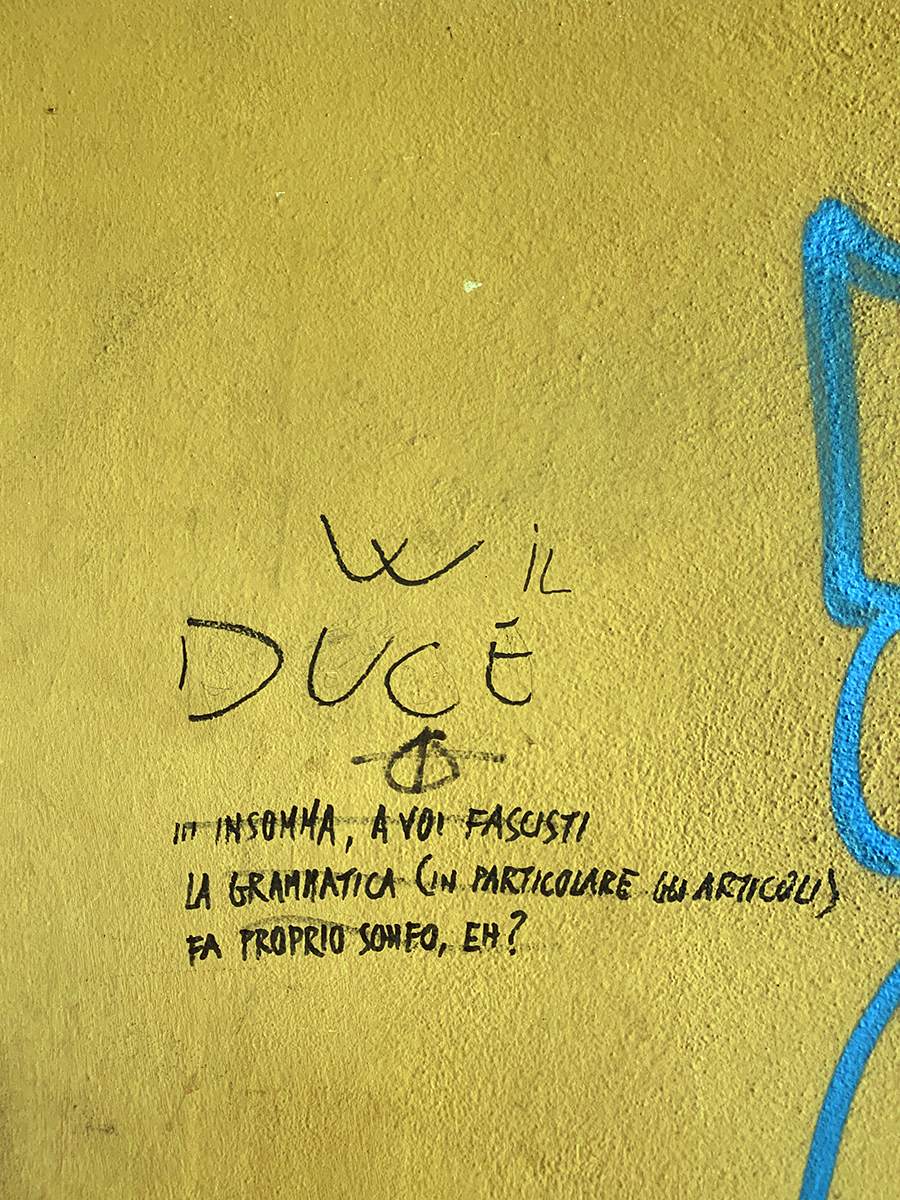 W iL
DUCE
... INSOMMA, A VOI FASCISTI
LA GRAMMATICA (IN PARTICOLARE GLI ARTICOLI)
FA PROPRIO SCHIFO, EH?